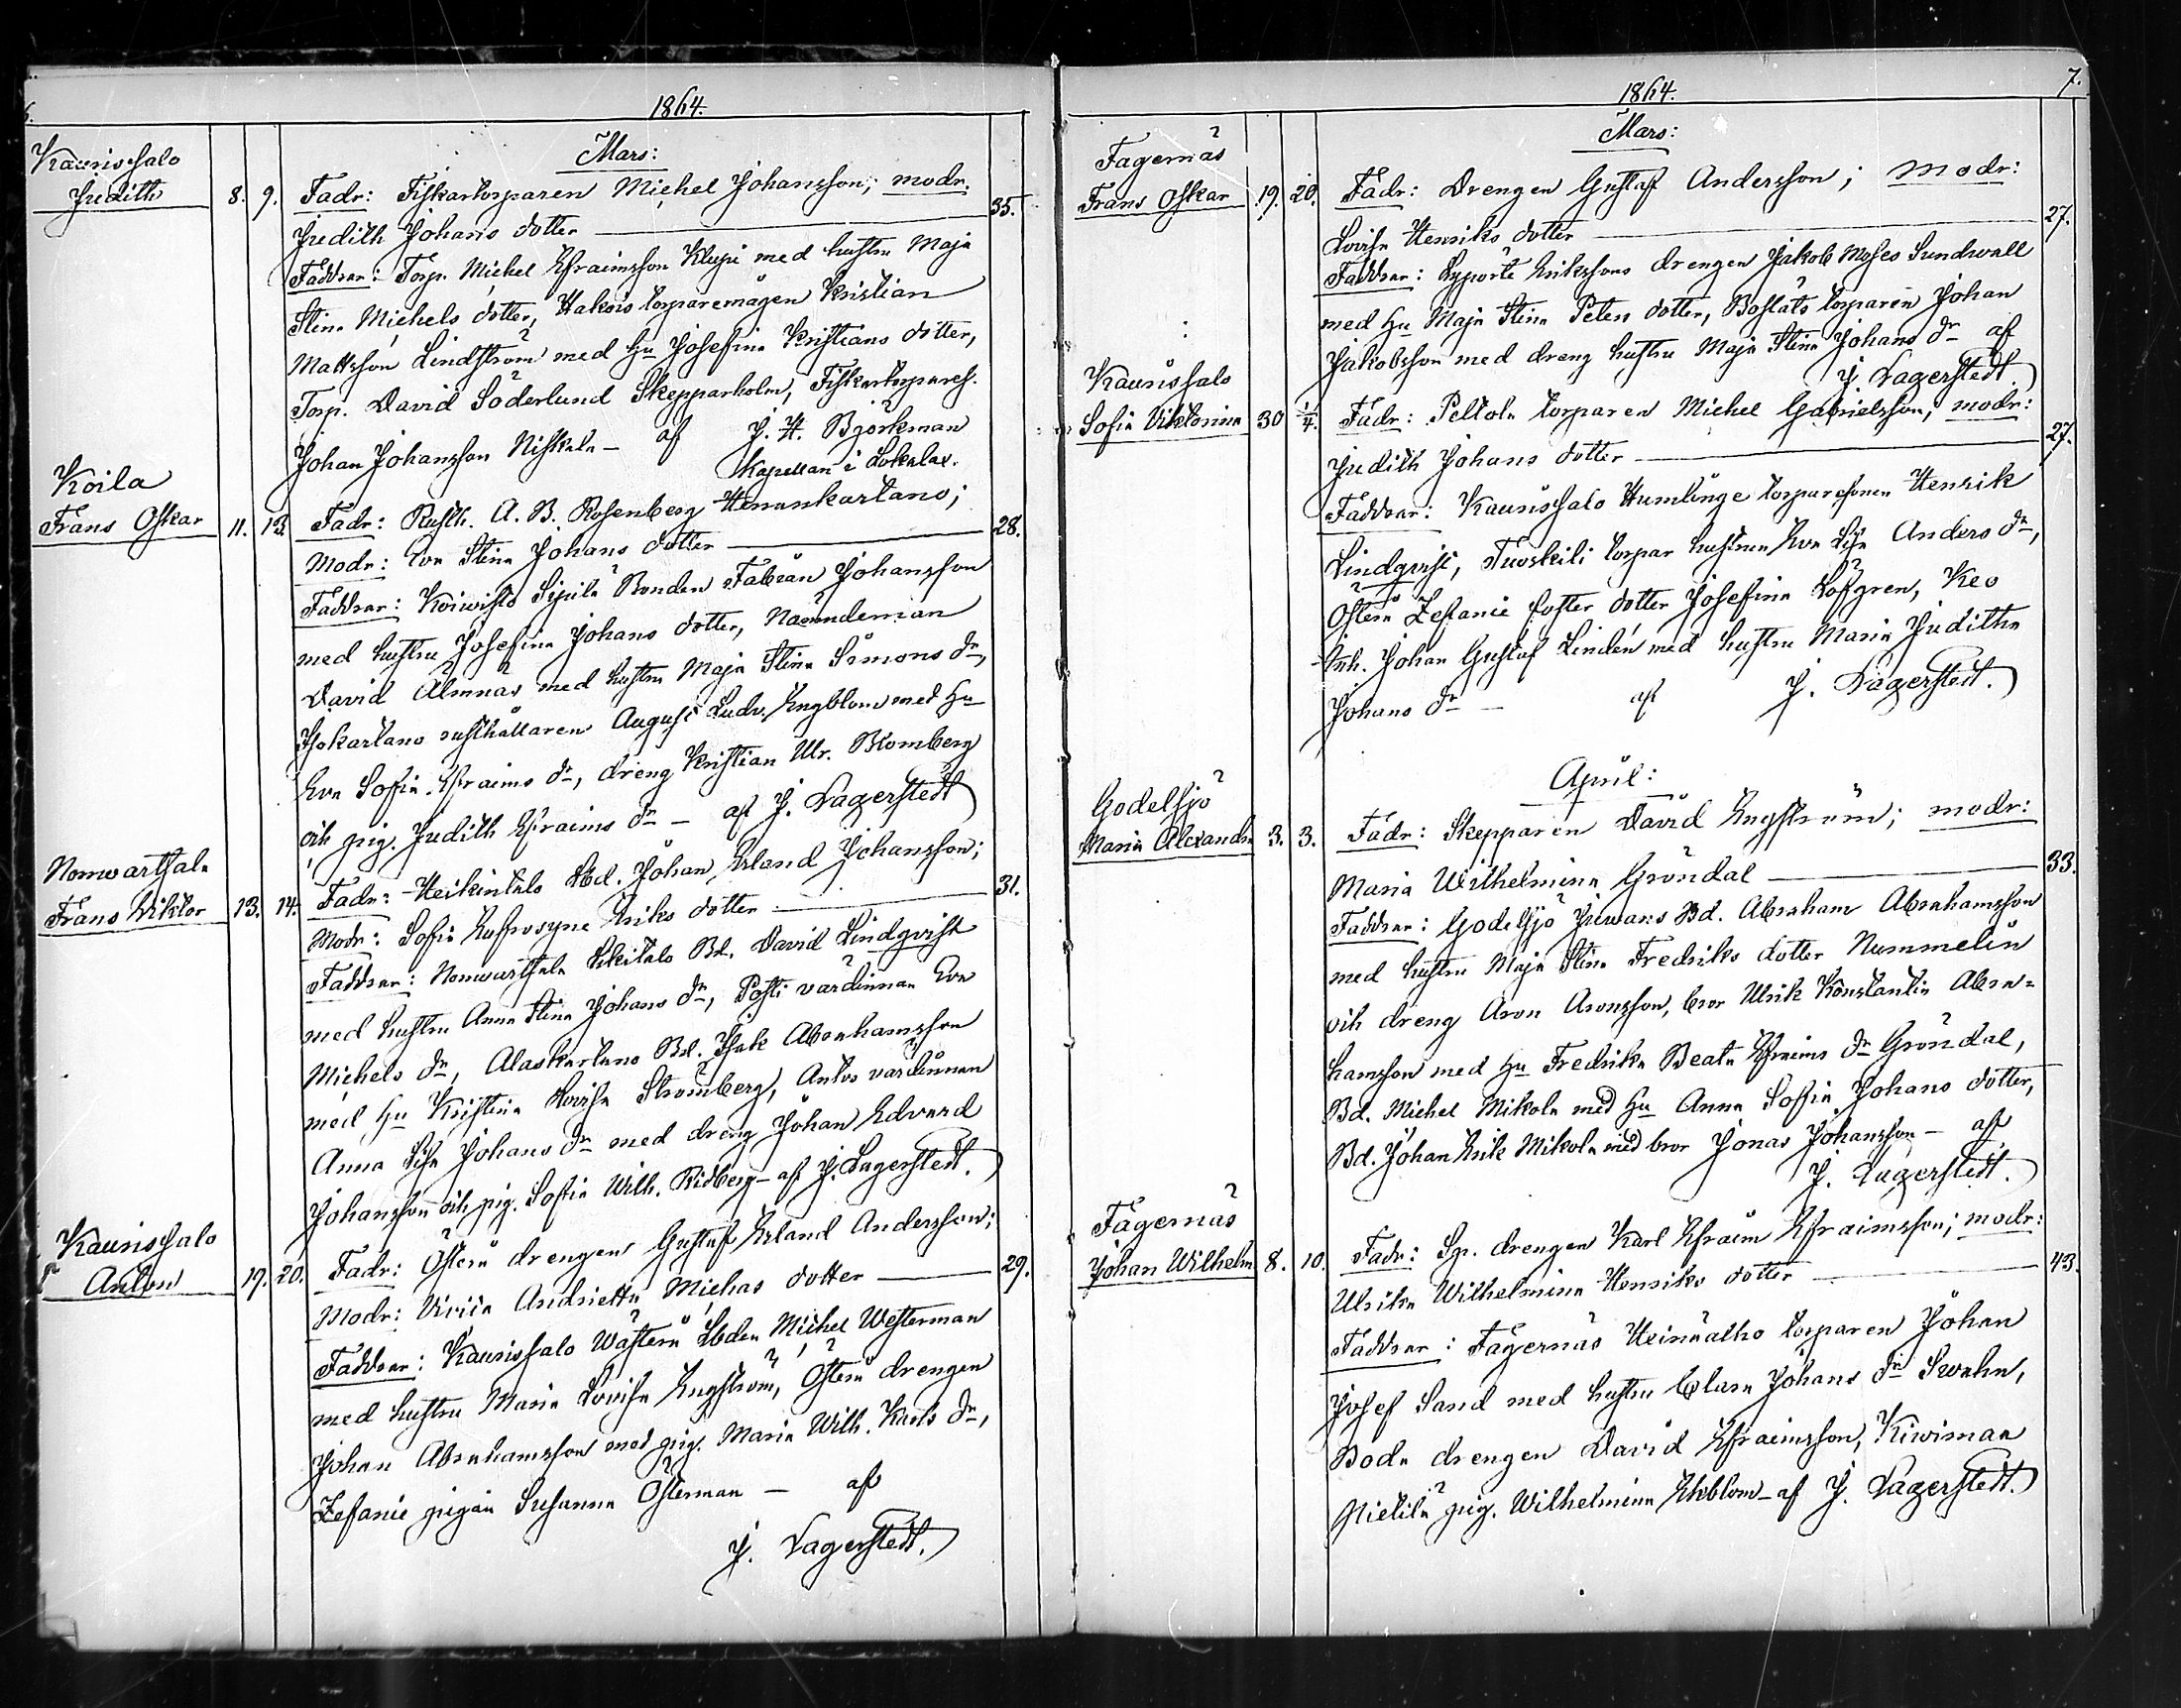 6.
1864.
Mars:
Kaurissalo
Judith 8. 9. Fadr: Fiskartorparen Michel Johansson; modr.
Judith Johans dotter — 35.
Faddrar: Torp. Michel Efraimsson Klupi med hustru Maja
Stina Michels dotter, Hakois torparemågen Kristian
Mattsson Lindström med hu Josefina Kristians dotter,
Torp. David Söderlund Skepparholm, Fiskartorpares.
Johan Johansson Niskala — af J. H. Björkman
Kapellan i Lokalax.
Koila
Frans Oskar 11. 13. Fadr: Rusth. A. B. Rosenberg Hemmkartano;
Modr: Eva Stina Johans dotter — 28.
Faddrar: Koiwisto Sipilä Bonden Fabian Johansson
med hustru Josefina Johans dotter, Nämndeman
David Almnäs med hustru Maja Stina Simons dr,
Isokartano rusthållaren August Ludv. Engblom med hu
Eva Sofia Efraims dr, dreng Kristian Ulr. Blomberg
och pig. Judith Efraims dr — af J. Lagerstedt
Nonwartsala
Frans Viktor 13. 14. Fadr: Heikintalo Bd. Johan Erland Johansson;
Modr: Sofia Eufrosyne Eriks dotter — 31.
Faddrar: Nonwartsala Ukitalo Bd. David Lindqvist
med hustru Anna Stina Johans dr, Posti värdinnan Eva
Michels dr, Alaskartano Bd. Isak Abrahamsson
med hu Kristina Lovisa Strömberg, Antos värdinnan
Anna Lisa Johans dr med dreng Johan Edvard
Johansson och pig. Sofia Wilh. Ridberg — af J. Lagerstedt.
Kaurissalo
Anton 19. 20. Fadr: Österu drengen Gustaf Erland Andersson;
Modr: Viviia Andrietta Michas dotter — 29.
Faddrar: Kaurissalo Wästerü Lbden Michel Westerman
med hustru Maria Lovisa Engström, Österü drengen
Johan Abrahamsson med pig. Maria Wilh. Karls dr,
Zefanie pigan Susanna Österman — af
J. Lagerstedt.
7.
1864.
Mars:
Fagernäs
Frans Oskar 19. 20. Fadr: Drengen Gustaf Andersson; modr:
Lovisa Henriks dotter — 27.
Faddrar: Lypörte Erikssons drengen Jakob Moses Sundwall
med hu Maja Stina Peters dotter, Boslats torparen Johan
Jakobsson med dreng hustru Maja Stina Johans dr af
J. Lagerstedt.
Kaurissalo
Sofia Viktorina 30 1/4. Fadr: Peltola torparen Michel Gabrielsson; modr:
Judith Johans dotter — 27.
Faddrar: Kaurissalo Humlinge torparesonen Henrik
Lindqvist, Tuoskili torpar hustrun Eva Lisa Anders dr,
Österü Zefanie foster dotter Josefina Löfgren, Keo
Inh. Johan Gustaf Lindén med hustru Maria Juditha
Johans dr — af J. Lagerstedt.
April:
Godelsjö
Maria Alexandra 3. 3. Fadr: Skepparen David Engström; modr:
Maria Wilhelmina Gröndal — 33.
Faddrar: Godelsjö Juwans Bd. Abraham Abrahamsson
med hustru Maja Stina Fredriks dotter Nummelin
och dreng Aron Aronsson, bror Ulrik Konstantin Abra-
hamsson med hu Fredrika Beata Efraims dr Gröndal,
Bd. Michel Mikola med hu Anna Sofia Johans dotter,
Bd. Johan Erik Mikola med bror Jonas Johansson — af
J. Lagerstedt.
Fagernäs
Johan Wilhelm 8. 10. Fadr: Sp. drengen Karl Efraim Efraimsson; modr:
Ulrika Wilhelmina Henriks dotter — 43.
Faddrar: Fagernäs Heinäalho torparen Johan
Josef Sand med hustru Clara Johans dr Swahn,
Boda drengen David Efraimsson, Kiwimaa
Nietilä pig. Wilhelmina Ekblom — af J. Lagerstedt.